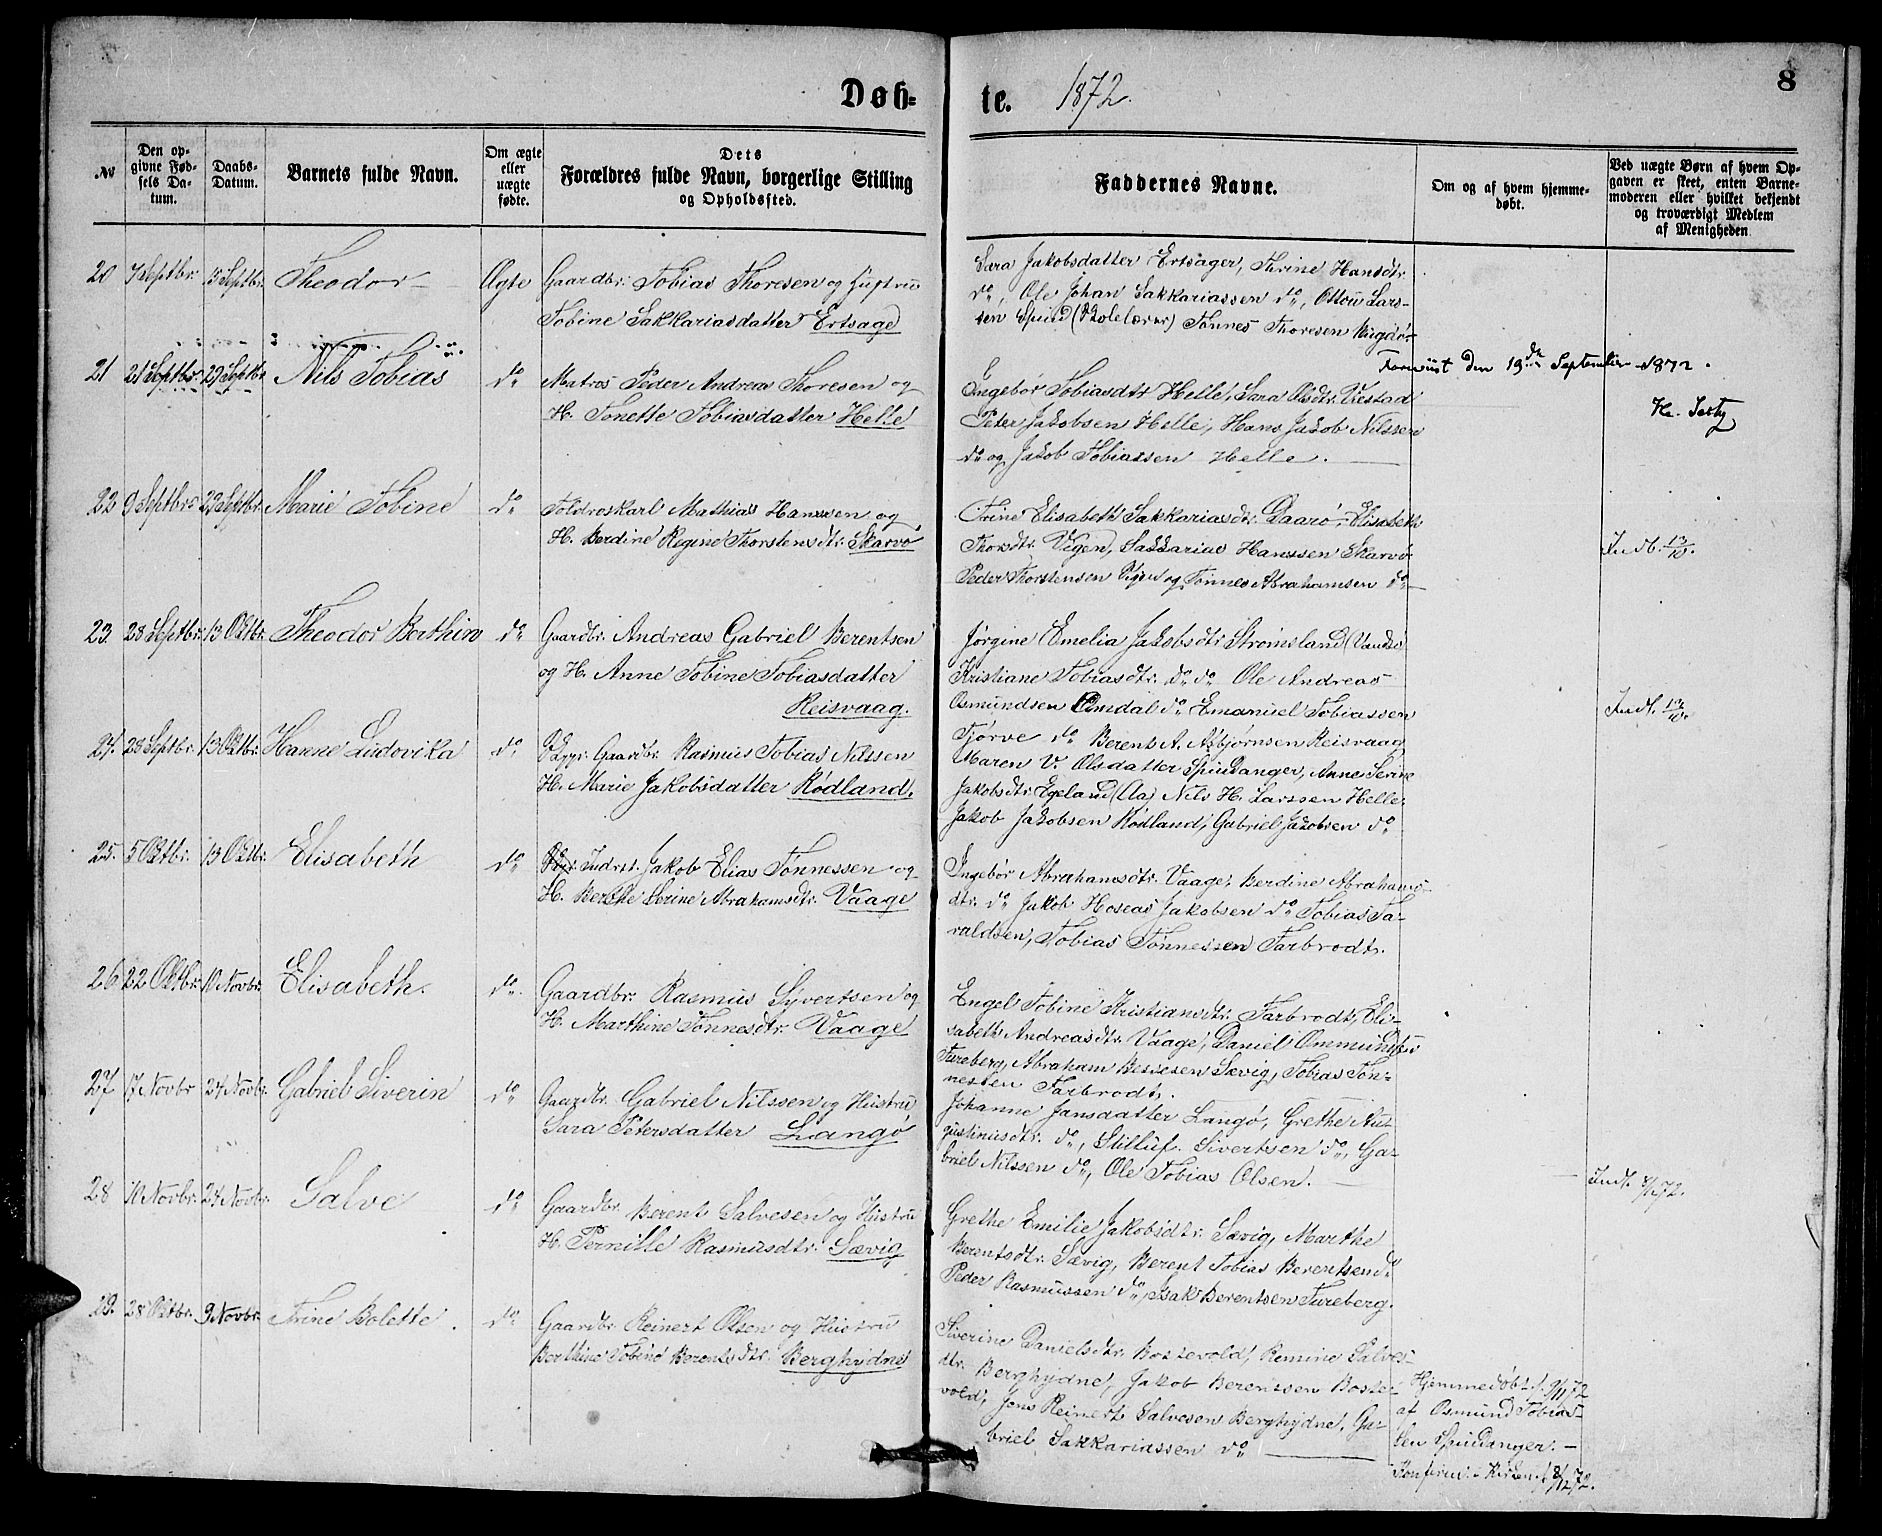 Døb=
te. 1872.
8
No
Den op-
givne Fød-
sels Da-
tum.
Daabs-
Datum.
Barnets fulde Navn.
Om ægte
eller
uægte
fødte.
Dets
Forældres fulde Navn, borgerlige Stilling
og Opholdssted.
Faddernes Navne.
Om og af hvem hjemme-
døbt.
Ved uægte Børn af hvem Op-
gaven er skeet, enten Barne-
moderen eller hvilket bekjendt
og troværdigt Medlem
af Menigheden
20 7 Septbr. 15 Septbr. Theodor Ægte Gaardbr. Tobias Thoresen og Hustru
Tobine Sakkariasdatter Ertsage
Sara Jakobsdatter Ertsager, Trine Hansdtr.
do, Ole Johan Sakkariassen do, Ottou Lars-
sen Spind (Skolelærer) Tønnes Thoresen
21 21 Septbr. 29 Septbr. Nils Tobias do Matros Peder Andreas Thoresen og
H. Tonette Tobiasdatter Helle
Foreviist den 19de September 1872.
Ingebor Tobiasdtr Helle, Sara Olsdtr. Viestad
Peter Jakobsen Helle, Hans Jakob Nilssen
do og Jakob Tobiassen Helle.
22 9 Septbr. 29 Septbr. Marie Tobine do Toldroskarl Mathias Hanssen og
H. Berdine Regine Thorstensdtr. Skarvø
Trine Elisabeth Sakkariasdtr. Daarø, Elisabeth
Thorsdtr. Vigen, Sakkarias Hanssen Skarvø
Peder Thorstensen Vigen og Tønnes Abrahamsen do
Indb. 13/10.
23. 28 Septbr. 13 Oktbr. Theodor Berthin do Gaardbr. Andreas Gabriel Berentsen
og H. Anne Tobine Tobiasdatter
Reisvaag.
Jørgine Emelia Jakobsdtr. Strømsland (Vandsø
Kristiane Tobiasdtr. do do Ole Andreas
Osmundsen Omdal do Emanuel Tobiassen
Tjørve do Berent A. Asbjørnsen Reisvaag
Indt. 13/10.
24. 23 Septbr. 13 Oktbr. Hanne Ludovika do Gaardbr. Rasmus Tobias Nilssen
H. Marie Jakobsdatter Rødland.
Maren V. Olsdatter Spindanger, Anne Serine
Jakobsdtr. Egeland (Aa) Nils H. Larssen Helle,
Jakob Jakobsen Rødland, Gabriel Jakobsen do
25. 5 Oktbr. 13 Oktbr. Elisabeth do Indrst. Jakob Elias Tønnessen og
H. Berthe Serine Abrahamsdtr. Vaage
Ingebor Abrahamsdtr. Vaage, Berdine Abrahams-
dtr. do Jakob Hoseas Jakobsen do Tobias Ta-
raldsen, Tobias Tønnessen Farbrodt.
26 22 Oktbr. 10 Novbr. Elisabeth. do Gaardbr. Rasmus Syvertsen og
H. Marthine Tønnesdtr. Vaage
Engel Tobine Kristiansdtr. Farbrodt, Eli-
sabeth Andreasdtr. Vaage, Daniel Ommundsen
Tureberg, Abraham Bessesen Sævig, Tobias Tøn-
nessen Farbrodt.
27 17 Novbr 24 Novbr. Gabriel Siverin do Gaardbr. Gabriel Nilssen og Hustru
Sara Petersdatter Langø
Johanne Jansdatter Langø, Grethe Au-
gustinusdtr. do, Stilluf Sivertsen do, Ga-
briel Nilssen do, Ole Tobias Olsen.
28 10 Novbr. 24 Novbr. Salve do Gaardbr. Berent Salvesen og Hustru
H. Pernille Rasmusdtr. Sævig
Grethe Emilie Jakobsdtr. Sævig, Marthe
Berentsdtr. Sævig, Berent Tobias Berentsen do
Peder Rasmussen do, Isak Berentsen Tureberg.
29. 28 Oktbr. 9 Novbr. Trine Bolette. do Gaardbr Reinert Olsen og Hustru
Berthine Tobine Berentsdtr. Berghydne
Siverine Danielsdtr. Bostevold, Remine Salves-
dtr. Berghydne, Jakob Berentsen Boste-
vold, Jens Reinert Salvesen Berghydne, Ga-
briel Sakkariassen do
Hjemmedøbt f. 9/11 72
af Osmund Tobias-
sen Spindanger.
i Kirken f. 8/12 72.